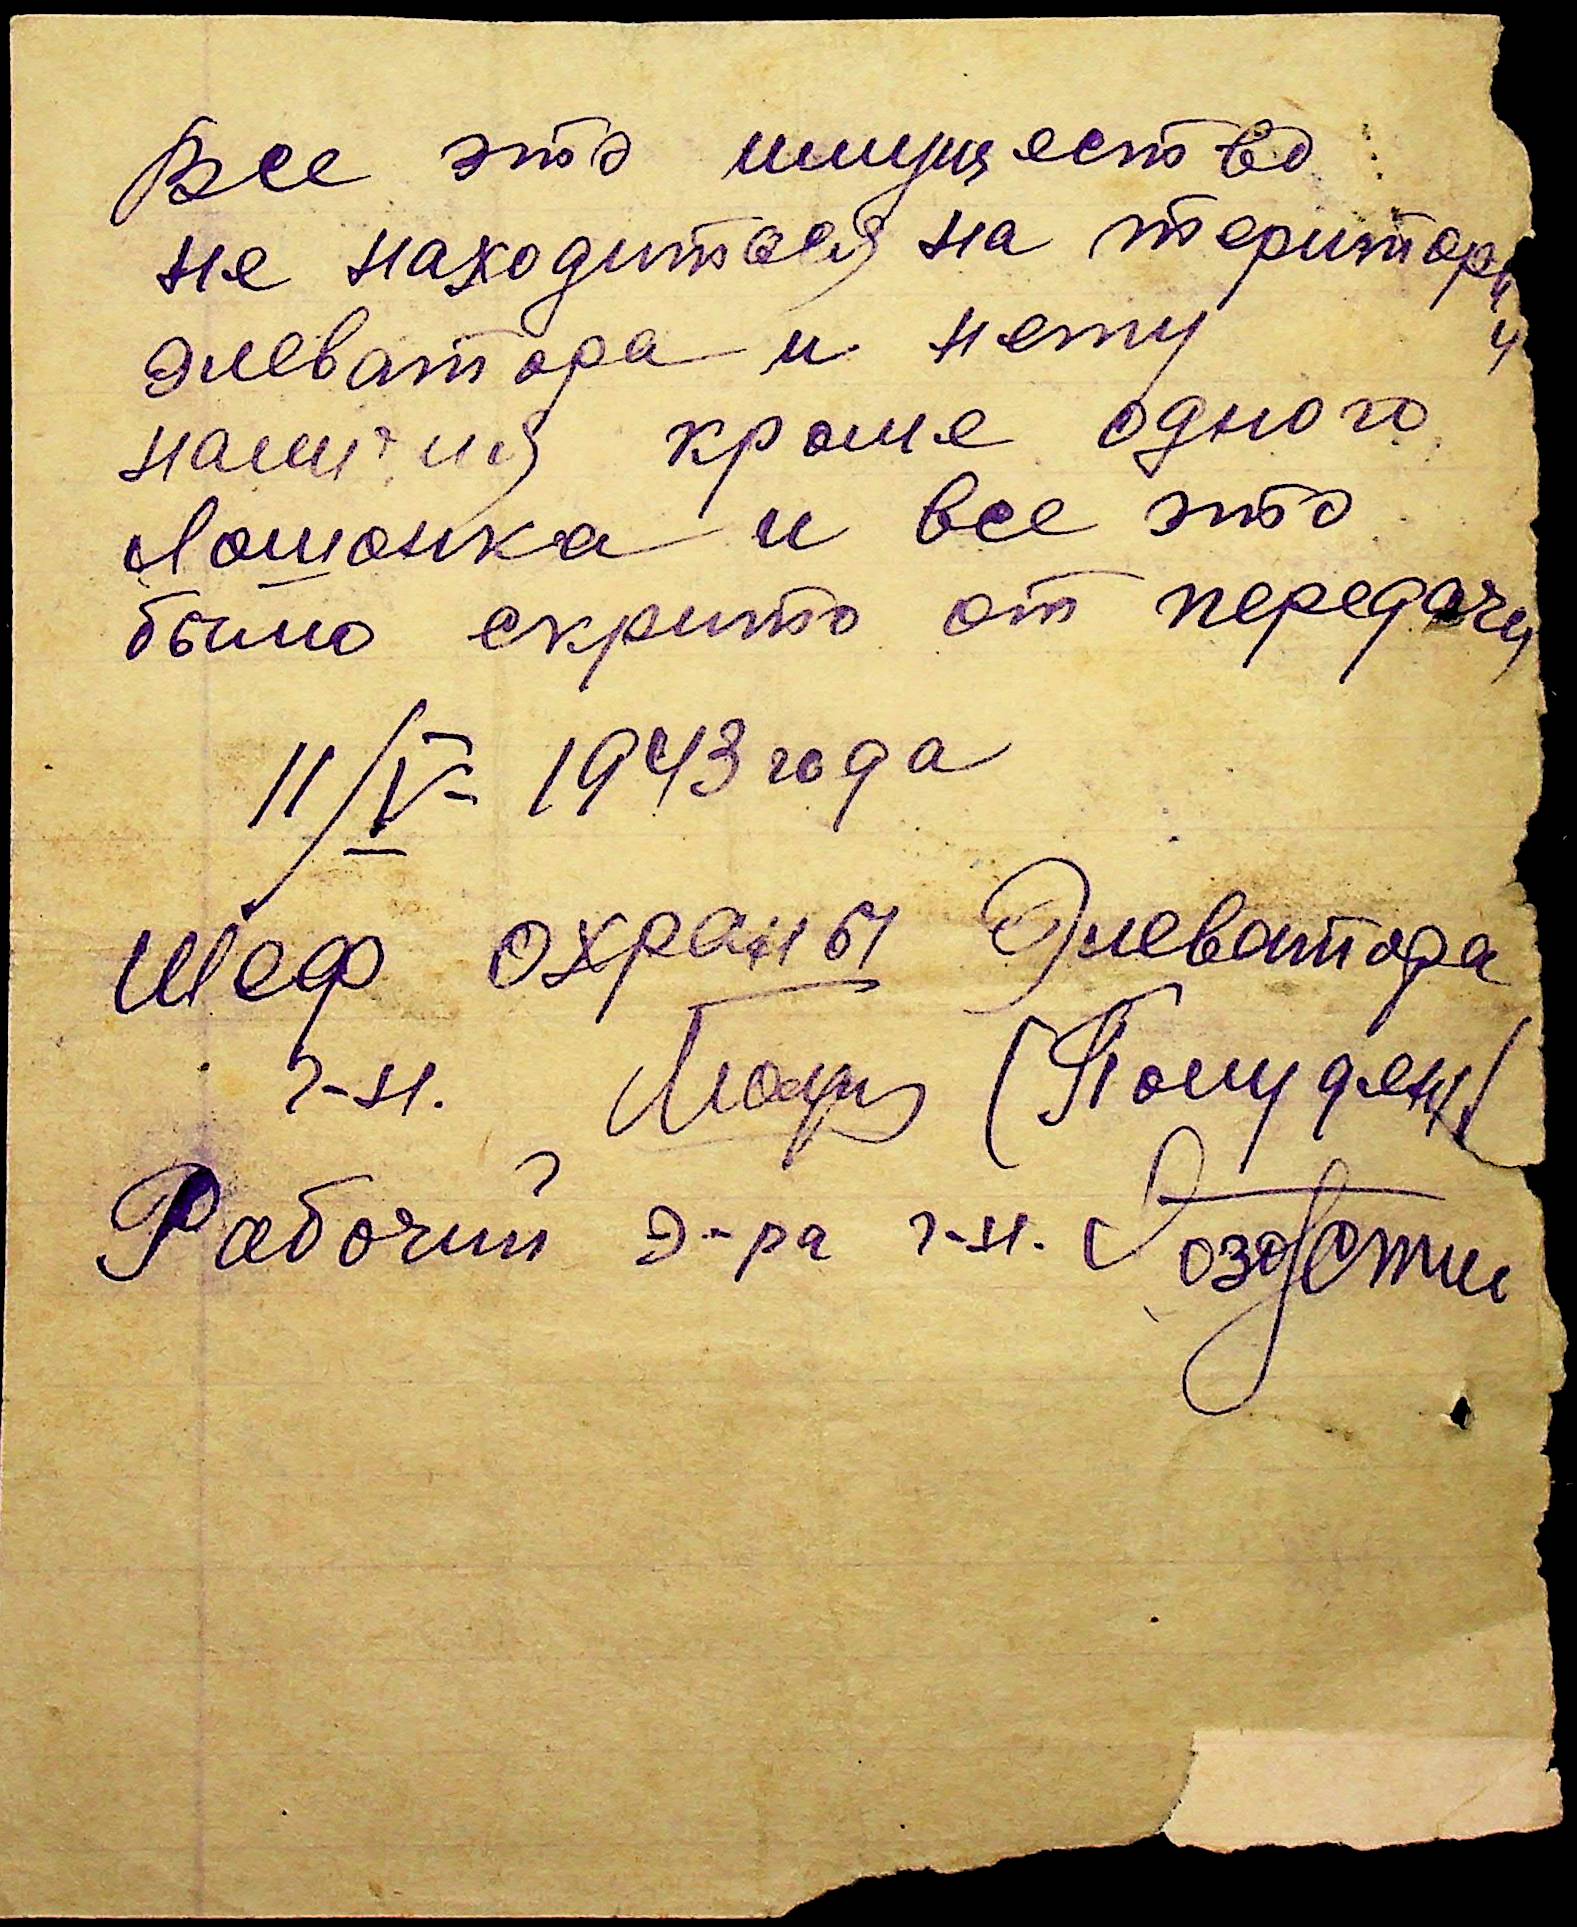 Все это имущество
не находиться на територи
элеватора и нету
наличия кроме одного
Лошонка и все это
было скрито от передачи
11/V- 1943 года
Шеф охраны Элеватора
г-н. (Полуден)
Рабочий э-ра г-н.